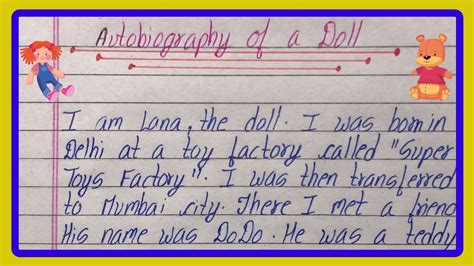 Autobiography of a Doll
I am Lana, the doll. I was born in
Delhi at a toy factory called "Super
Toys Factory". I was then transferred
to Mumbai city. There I met a friend
His name was DoDo. He was a teddy